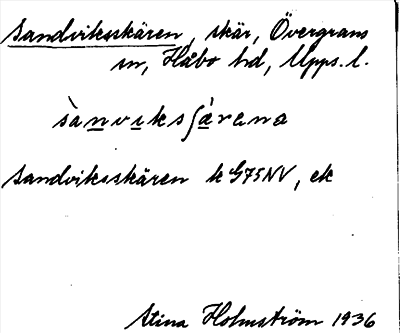 Sandviksskären, skär, Övergrans
sn, Håbo hd, Upps. l.
sànviksʃǻrana
Sandviksskären k G75NV, ek
Stina Holmström 1936